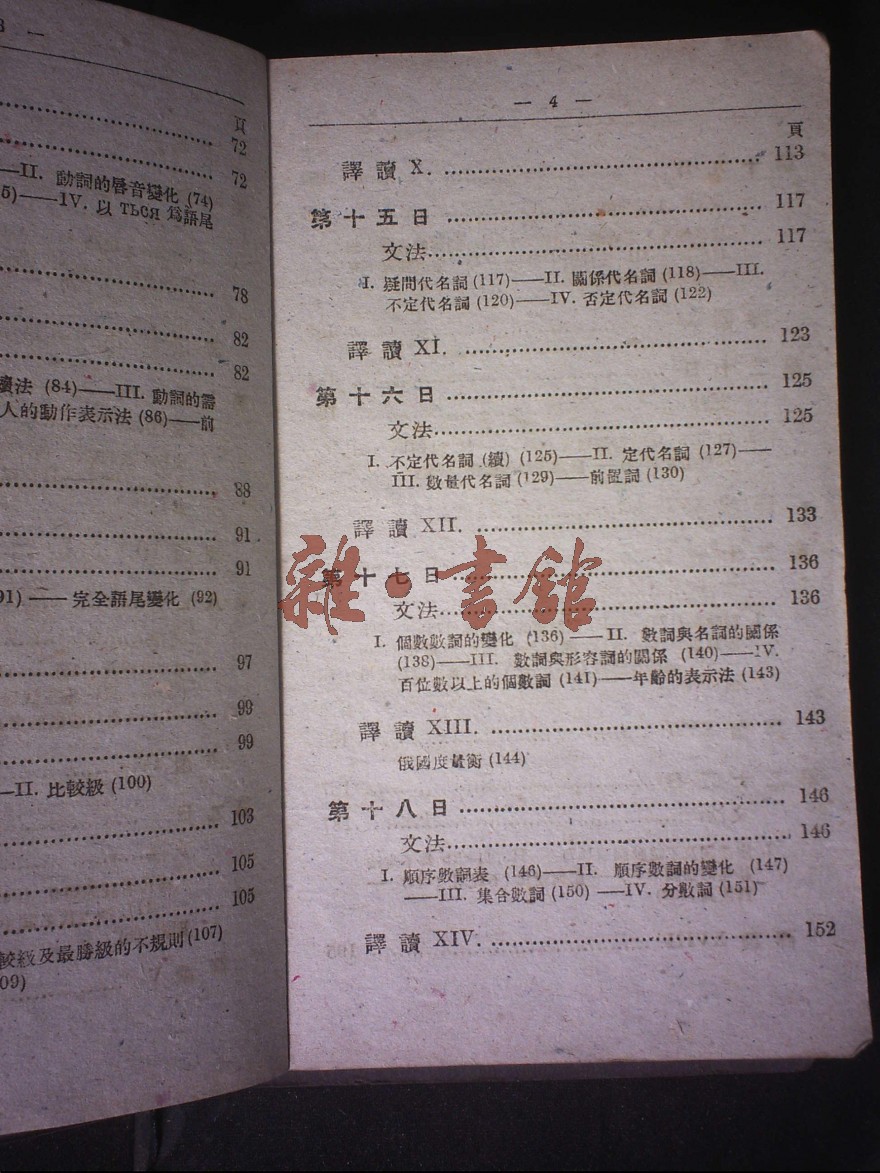 3 —
頁
72
72
—II. 動詞的唇音變化 (74)
5)——IV. 以 ТЬСЯ 爲語尾
78
82
82
讀法 (84)——III. 動詞的需
人的動作表示法 (86)——前
88
91
91
91) —— 完全語尾變化 (92)
97
99
99
—II. 比較級 (100)
103
105
105
較級及最勝級的不規則 (107)
09)
— 4 —
頁
譯讀 X. 113
第十五日 117
文法 117
I. 疑問代名詞 (117)——II. 關係代名詞 (118)——III.
不定代名詞 (120)——IV. 否定代名詞 (122)
譯讀 XI. 123
第十六日 125
文法 125
I. 不定代名詞 (續) (125)——II. 定代名詞 (127)——
III. 數量代名詞 (129)——前置詞 (130)
譯讀 XII. 133
第十七日 136
文法 136
I. 個數數詞的變化 (136)——II. 數詞與名詞的關係
(138)——III. 數詞與形容詞的關係 (140)——IV.
百位數以上的個數詞 (141)——年齡的表示法 (143)
譯讀 XIII. 143
俄國度量衡 (144)
第十八日 146
文法 146
I. 順序數詞表 (146)——II. 順序數詞的變化 (147)
——III. 集合數詞 (150) ——IV. 分數詞 (151)
譯讀 XIV. 152
雜·書館